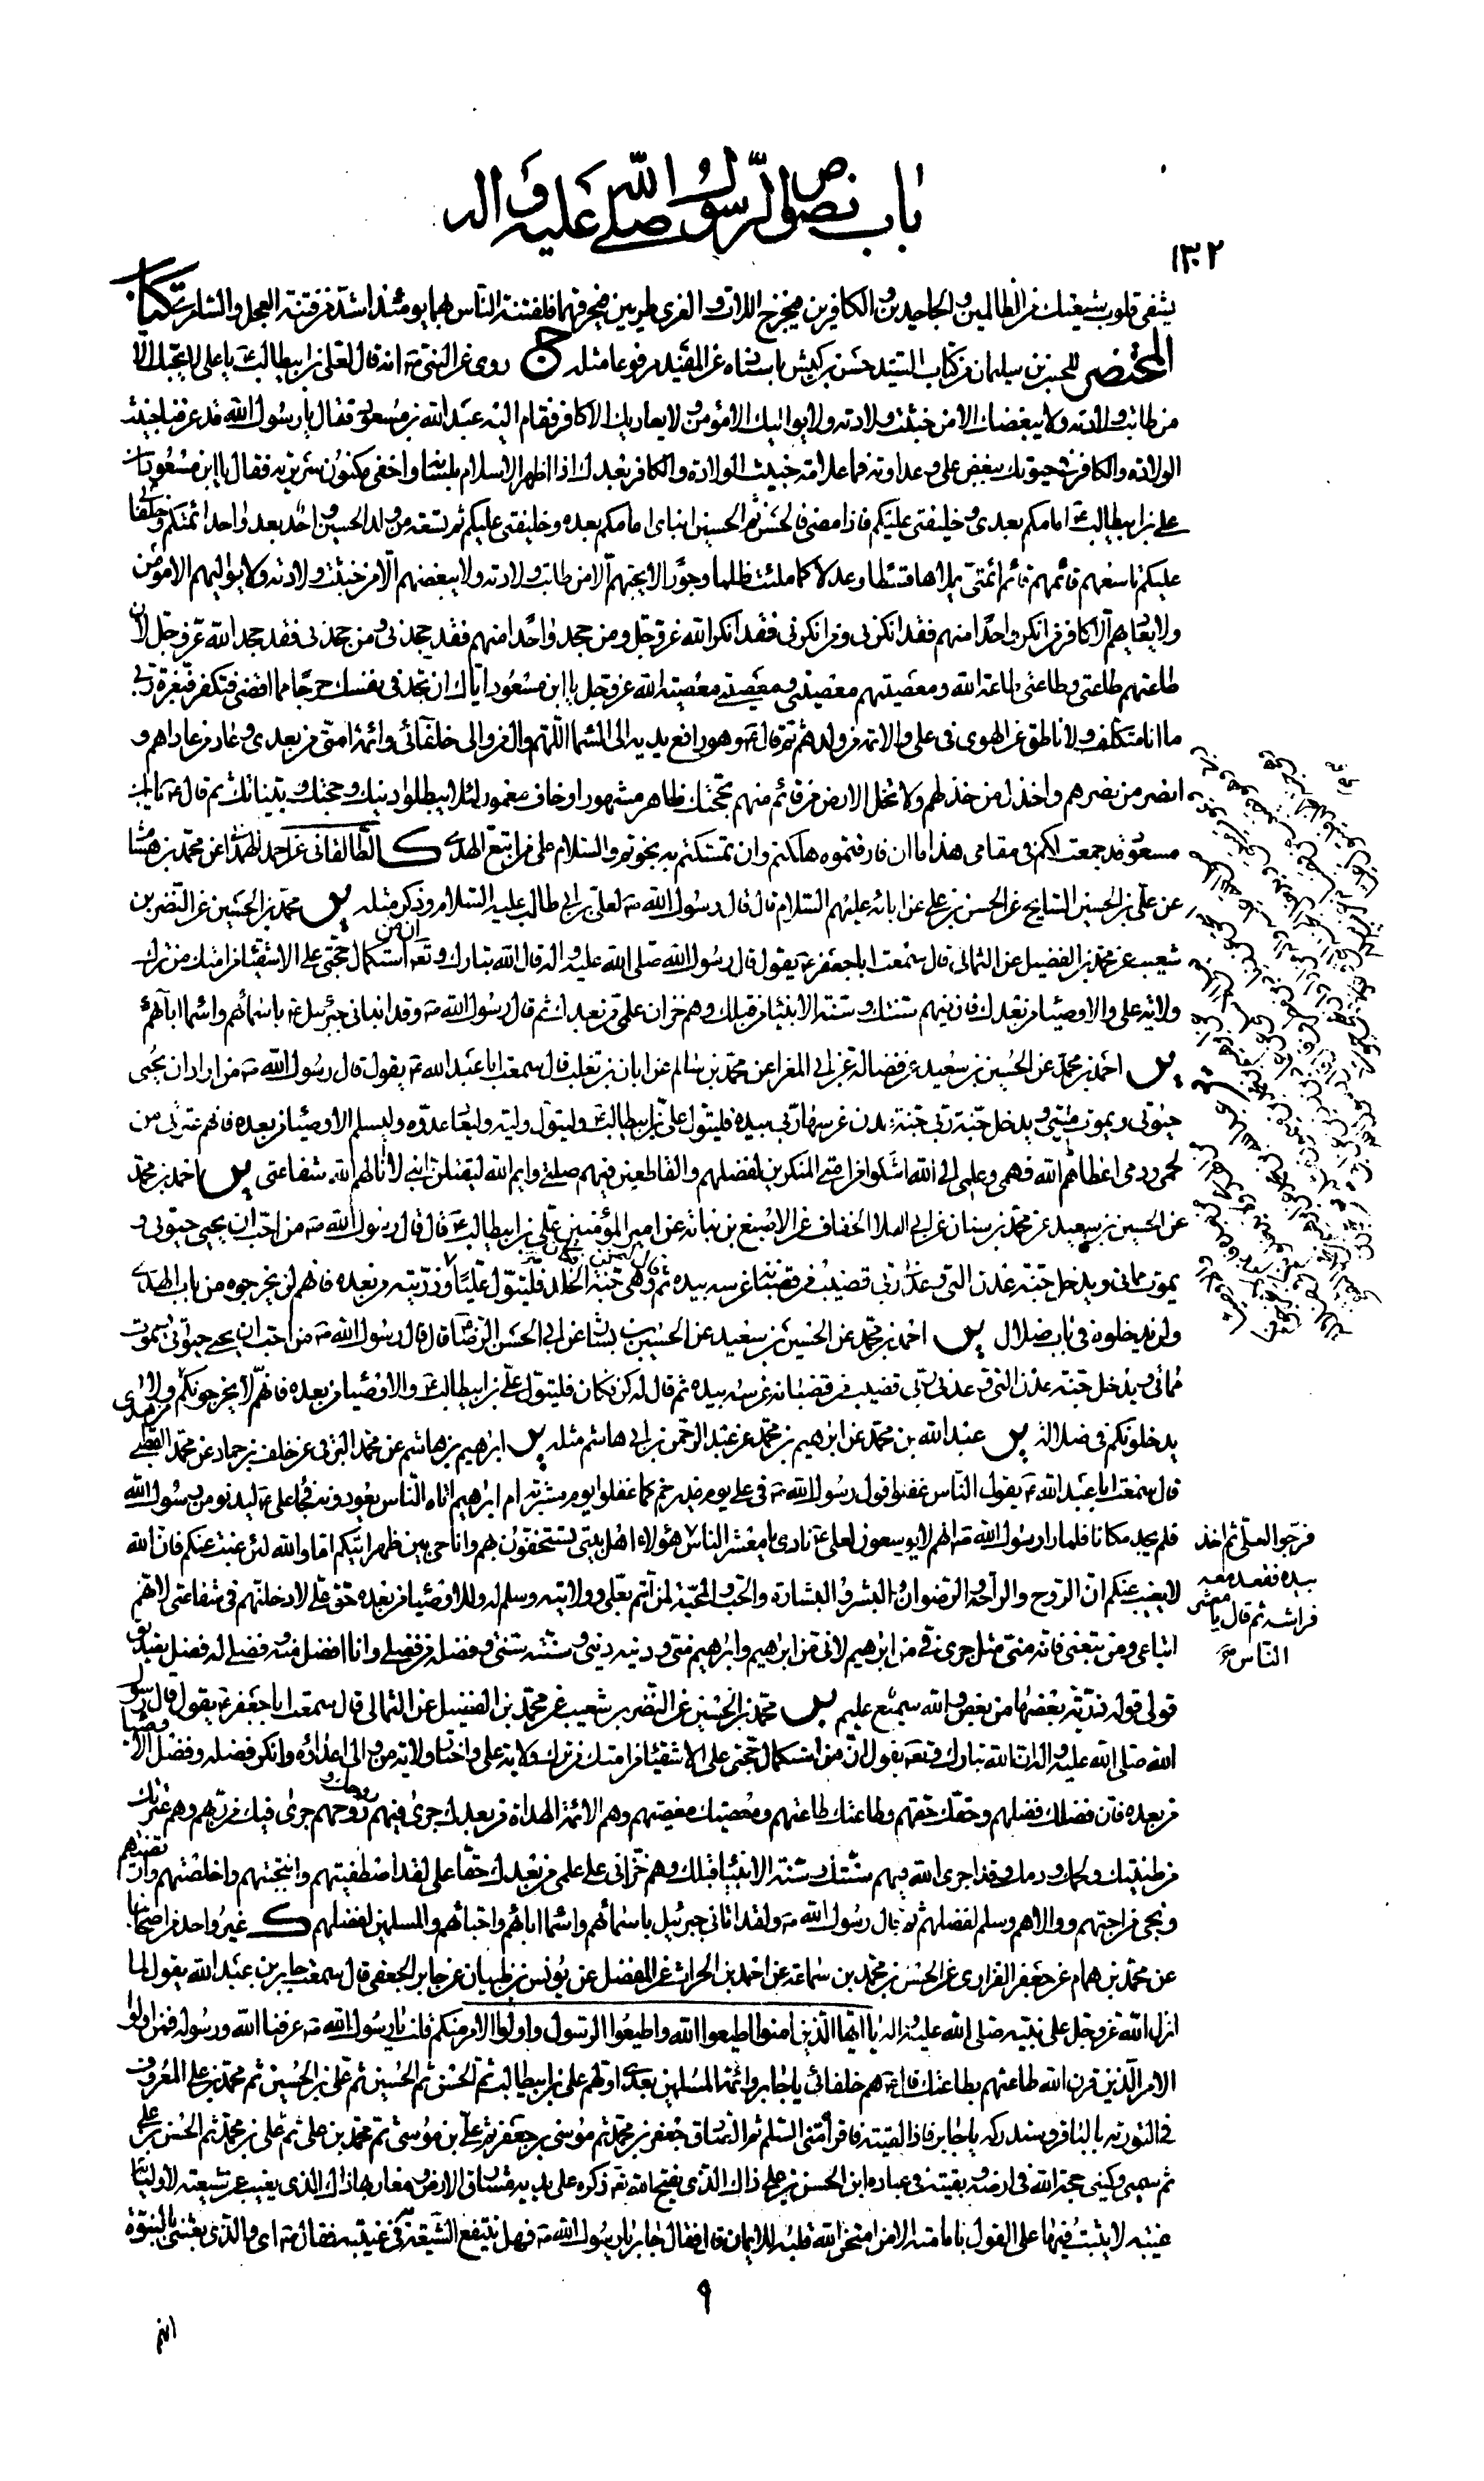 باب نصوص الرسول صلى الله عليه وآله
١٣٠٢
يشفى قلوب شيعتك من الظالمين والجاحدين والكافرين فيخرج اللات والعزى طريين فيحرقهما فلفتنة الناس بهما يومئذ اشد من فتنة العجل والسامرى كتاب
المحتضر للحسن بن سليمان من كتاب السيد حسن بن كبش باسناده عن المفيد مرفوعا مثله ج روى عن النبى ص انه قال لعلى بن ابيطالب ع يا على لا يحبك الا
من طابت ولادته ولا يبغضك الا من خبثت ولادته ولا يواليك الا مؤمن ولا يعاديك الا كافر فقام اليه عبد الله بن مسعود فقال يا رسول الله قد عرفنا خبيث
الولادة والكافر فى حيوتك ببغض على وعداوته فما علامة خبيث الولادة والكافر بعدك اذا اظهر الاسلام بلسانه واخفى مكنون سريرته فقال يا ابن مسعود ان
على بن ابيطالب ع امامكم بعدى وخليفتى عليكم فاذا مضى فالحسن ثم الحسين ابناى امامكم بعده وخليفتى عليكم ثم تسعة من ولد الحسين واحد بعد واحد ائمتكم وخلفائى
عليكم تاسعهم قائمهم قائم امتى يملاها قسطا وعدلا كما ملئت ظلما وجورا لا يحبهم الا من طابت ولادته ولا يبغضهم الا من خبثت ولادته ولا يواليهم الا مؤمن
ولا يعاديهم الا كافر من انكر واحدا منهم فقد انكرنى ومن انكرنى فقد انكر الله عز وجل ومن جحد واحدا منهم فقد جحدنى ومن جحدنى فقد جحد الله عز وجل لان
طاعتهم طاعتى وطاعتى طاعة الله ومعصيتهم معصيتى ومعصيتى معصية الله عز وجل يا ابن مسعود اياك ان تجد فى نفسك حرجا مما اقضى فتكفر فبعزة ربى
ما انا متكلف ولا ناطق عن الهوى فى على والائمة من ولده ثم قال ع وهو رافع يديه الى السماء اللهم وال من والى خلفائى وائمة امتى من بعدى وعاد من عاداهم و
انصر من نصرهم واخذل من خذلهم ولا تخل الارض من قائم منهم بحجتك ظاهر مشهور او خاف مغمور لئلا يبطل دينك وحجتك وبيناتك ثم قال ع يا ابن
مسعود قد جمعت لكم فى مقامى هذا ما ان فارقتموه هلكتم وان تمسكتم به نجوتم والسلام على من اتبع الهدى ك الطالقانى عن احمد الهمدانى عن محمد بن هشام
عن على بن الحسين السايح عن الحسن بن على عن ابائه عليهم السلام قال قال رسول الله ص لعلى بن ابى طالب عليه السلام وذكر مثله ير محمد بن الحسين عن النضر بن
شعيب عن محمد بن الفضيل عن الثمالى قال سمعت ابا جعفر ع يقول قال رسول الله صلى الله عليه واله قال الله تبارك وتعه ان من استكمال حجتى على الاشقياء من امتك من ترك
ولاية على والاوصياء من بعدك فان فيهم سنتك وسنة الانبياء من قبلك وهم خزان علمى من بعدك ثم قال رسول الله ص وقد انبانى جبرئيل ع باسمائهم واسماء ابائهم
ير احمد بن محمد عن الحسين بن سعيد عن فضالة عن ابى المغرا عن محمد بن سالم عن ابان بن تغلب قال سمعت ابا عبد الله ع يقول قال رسول الله ص من اراد ان يحيى
حيوتى ويموت ميتتى ويدخل جنة ربى جنة عدن غرسها ربى بيده فليتول على بن ابيطالب ع وليتول وليه وليعاد عدوه وليسلم الاوصياء من بعده فانهم عترتى من
لحمى ودمى اعطاهم الله فهمى وعلمى الى الله اشكو امر امتى المنكرين لفضلهم والقاطعين فيهم صلتى وايم الله ليقتلن ابنى لا انالهم الله شفاعتى ير احمد بن محمد
عن الحسين بن سعيد عن محمد بن سنان عن ابى العلا الخفاف عن الاصبغ بن نباتة عن امير المؤمنين على بن ابيطالب ع قال قال رسول الله ص من احب ان يحيى حيوتى و
يموت مماتى ويدخل جنة عدن التى وعدنى ربى قضيب من قضبانه غرسه بيده ثم قال له كن فكان وهى جنة الخلد فليتول عليا وذريته من بعده فانهم لن يخرجوه من باب الهدى
ولن يدخلوه فى باب ضلال ير احمد بن محمد عن الحسين بن سعيد عن الحسين بن بشار عن ابى الحسن الرضا ع قال قال رسول الله ص من احب ان يحيى حيوتى ويموت
مماتى ويدخل جنة عدن التى وعدنى ربى قضيب من قضبانه غرسه بيده ثم قال له كن فكان فليتول على بن ابيطالب ع والاوصياء من بعده فانهم لا يخرجونكم من هدى ولا
يدخلونكم فى ضلالة ير عبد الله بن محمد عن ابرهيم بن محمد عن عبد الرحمن بن ابى هاشم مثله ير ابرهيم بن هاشم عن محمد البرقى عن خلف بن حماد عن محمد القبطى
قال سمعت ابا عبد الله ع يقول الناس غفلوا قول رسول الله ص فى على يوم غدير خم كما غفلوا يوم مشربة ام ابرهيم اتاه الناس يعودونه فجاء على ع ليدنو من رسول الله
فلم يجد مكانا فلما راى رسول الله ص انهم لا يوسعون لعلى ع نادى يا معشر الناس هؤلاء اهل بيتى تستخفون بهم وانا حى بين ظهرانيكم اما والله لئن غبت عنكم فان الله
لا يغيب عنكم ان الروح والراحة والرضوان والبشر والبشارة والحب والمحبة لمن ائتم بعلى وولايته وسلم له وللاوصياء من بعده حق على لادخلنهم فى شفاعتى لانهم
اتباعى ومن تبعنى فانه منى مثل جرى فى من ابرهيم لانى من ابرهيم وابرهيم منى ودينه دينى وسنته سنتى وفضله من فضلى وانا افضل منه وفضلى له فضل تصديق
قولى قوله ذرية بعضها من بعض والله سميع عليم ير محمد بن الحسين عن النضر بن شعيب عن محمد بن الفضيل عن الثمالى قال سمعت ابا جعفر ع يقول قال رسول
الله صلى الله عليه واله ان الله تبارك وتعه يقول ان من استكمال حجتى على الاشقياء من امتك من ترك ولاية على واختار ولاية من والى اعدائه وانكر فضله وفضل الاوصياء
من بعده فان فضلك فضلهم وحقك حقهم وطاعتك طاعتهم ومعصيتك معصيتهم وهم الائمة الهداة من بعدك جرى فيهم روحك وروحهم جرى فيك من ربهم وهم عترتك
من طينتك ولحمك ودمك وقد اجرى الله فيهم سنتك وسنة الانبياء قبلك وهم خزانى على علمى من بعدك حقا على لقد اصطفيتهم وانتجبتهم واخلصتهم وارتضيتهم
ونجى من احبهم ووالاهم وسلم لفضلهم ثم قال رسول الله ص ولقد اتانى جبرئيل باسمائهم واسماء ابائهم واحبائهم والمسلمين لفضلهم ك غير واحد من اصحابنا
عن محمد بن همام عن جعفر الفزارى عن الحسن بن محمد بن سماعة عن احمد بن الحارث عن المفضل عن يونس بن ظبيان عن جابر الجعفى قال سمعت جابر بن عبد الله يقول لما
انزل الله عز وجل على نبيه صلى الله عليه واله يا ايها الذين امنوا اطيعوا الله واطيعوا الرسول واولوا الامر منكم قلت يا رسول الله ص عرفنا الله ورسوله فمن اولوا
الامر الذين قرن الله طاعتهم بطاعتك فقال ع هم خلفائى يا جابر وائمة المسلمين بعدى اولهم على بن ابيطالب ثم الحسن ثم الحسين ثم على بن الحسين ثم محمد بن على المعروف
فى التورية بالباقر وستدركه يا جابر فاذا لقيته فاقراه منى السلم ثم الصادق جعفر بن محمد ثم موسى بن جعفر ثم على بن موسى ثم محمد بن على ثم على بن محمد ثم الحسن بن على
ثم سميى وكنيى حجة الله فى ارضه وبقيته فى عباده ابن الحسن بن على ذاك الذى يفتح الله تعه ذكره على يديه مشارق الارض ومغاربها ذاك الذى يغيب عن شيعته واوليائه
غيبة لا يثبت فيها على القول بامامته الا من امتحن الله قلبه للايمان قال فقال جابر يا رسول الله ص فهل ينتفع الشيعة به فى غيبته فقال ص اى والذى بعثنى بالنبوة
فرجوا لعلى ثم اخذ
بيده فقعد معه
على فراشه ثم قال يا معشر
الناس
٩
انهم